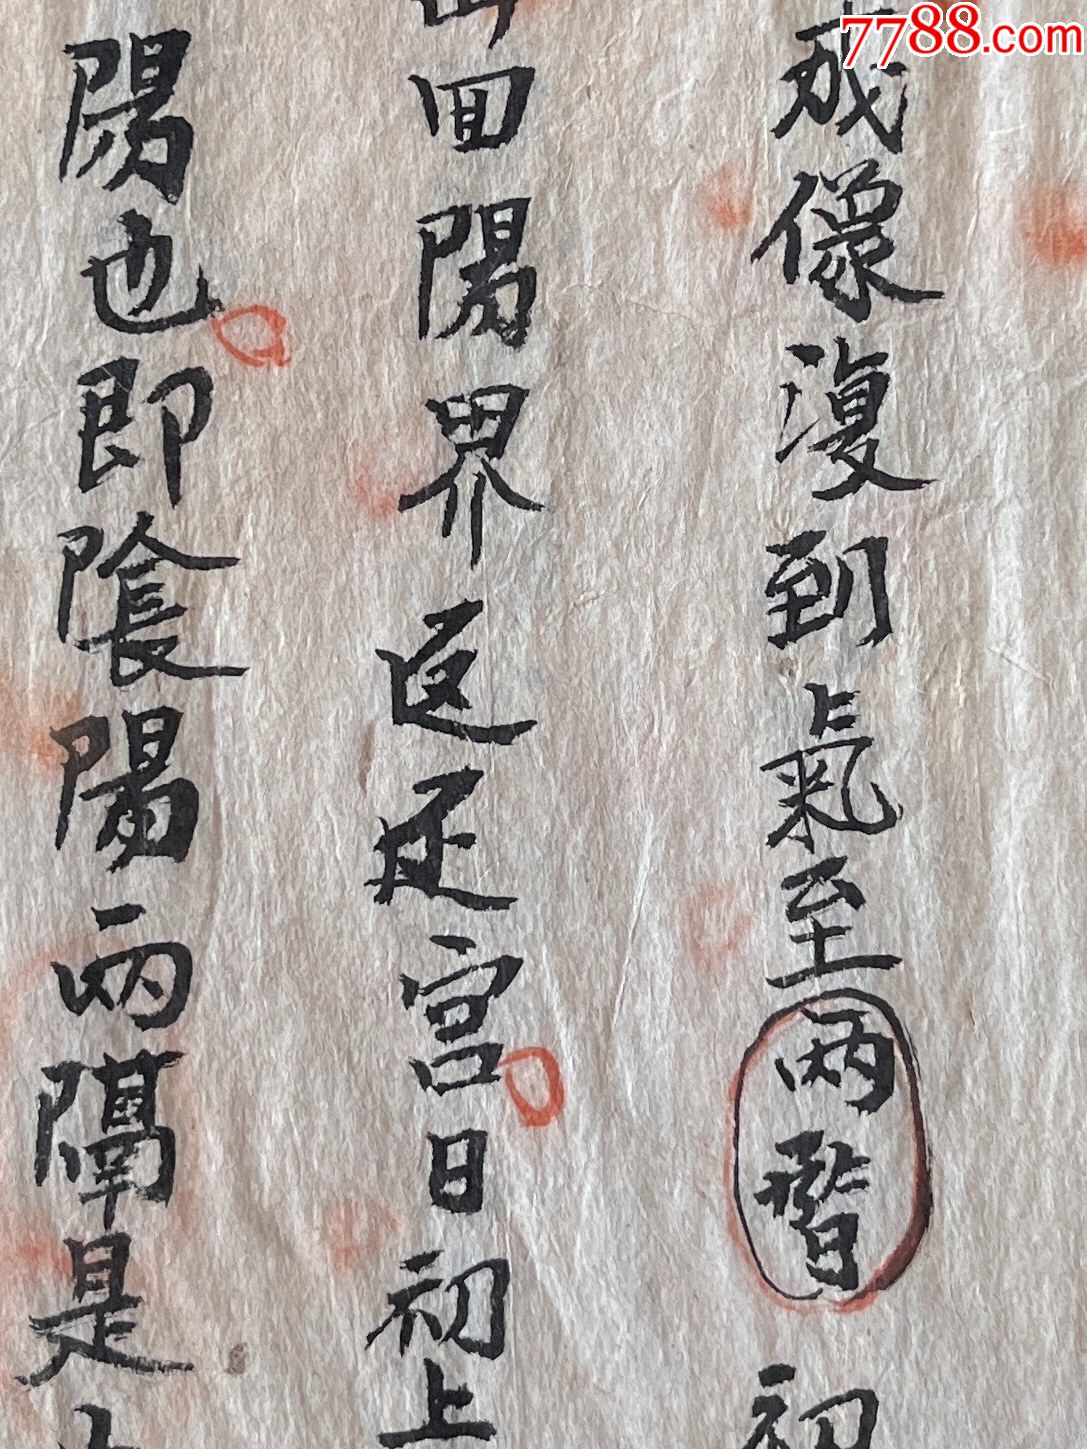 7788.com
成像復到氣至兩
初
回陽界返廷宮日初上
陽也即陰陽兩隔是